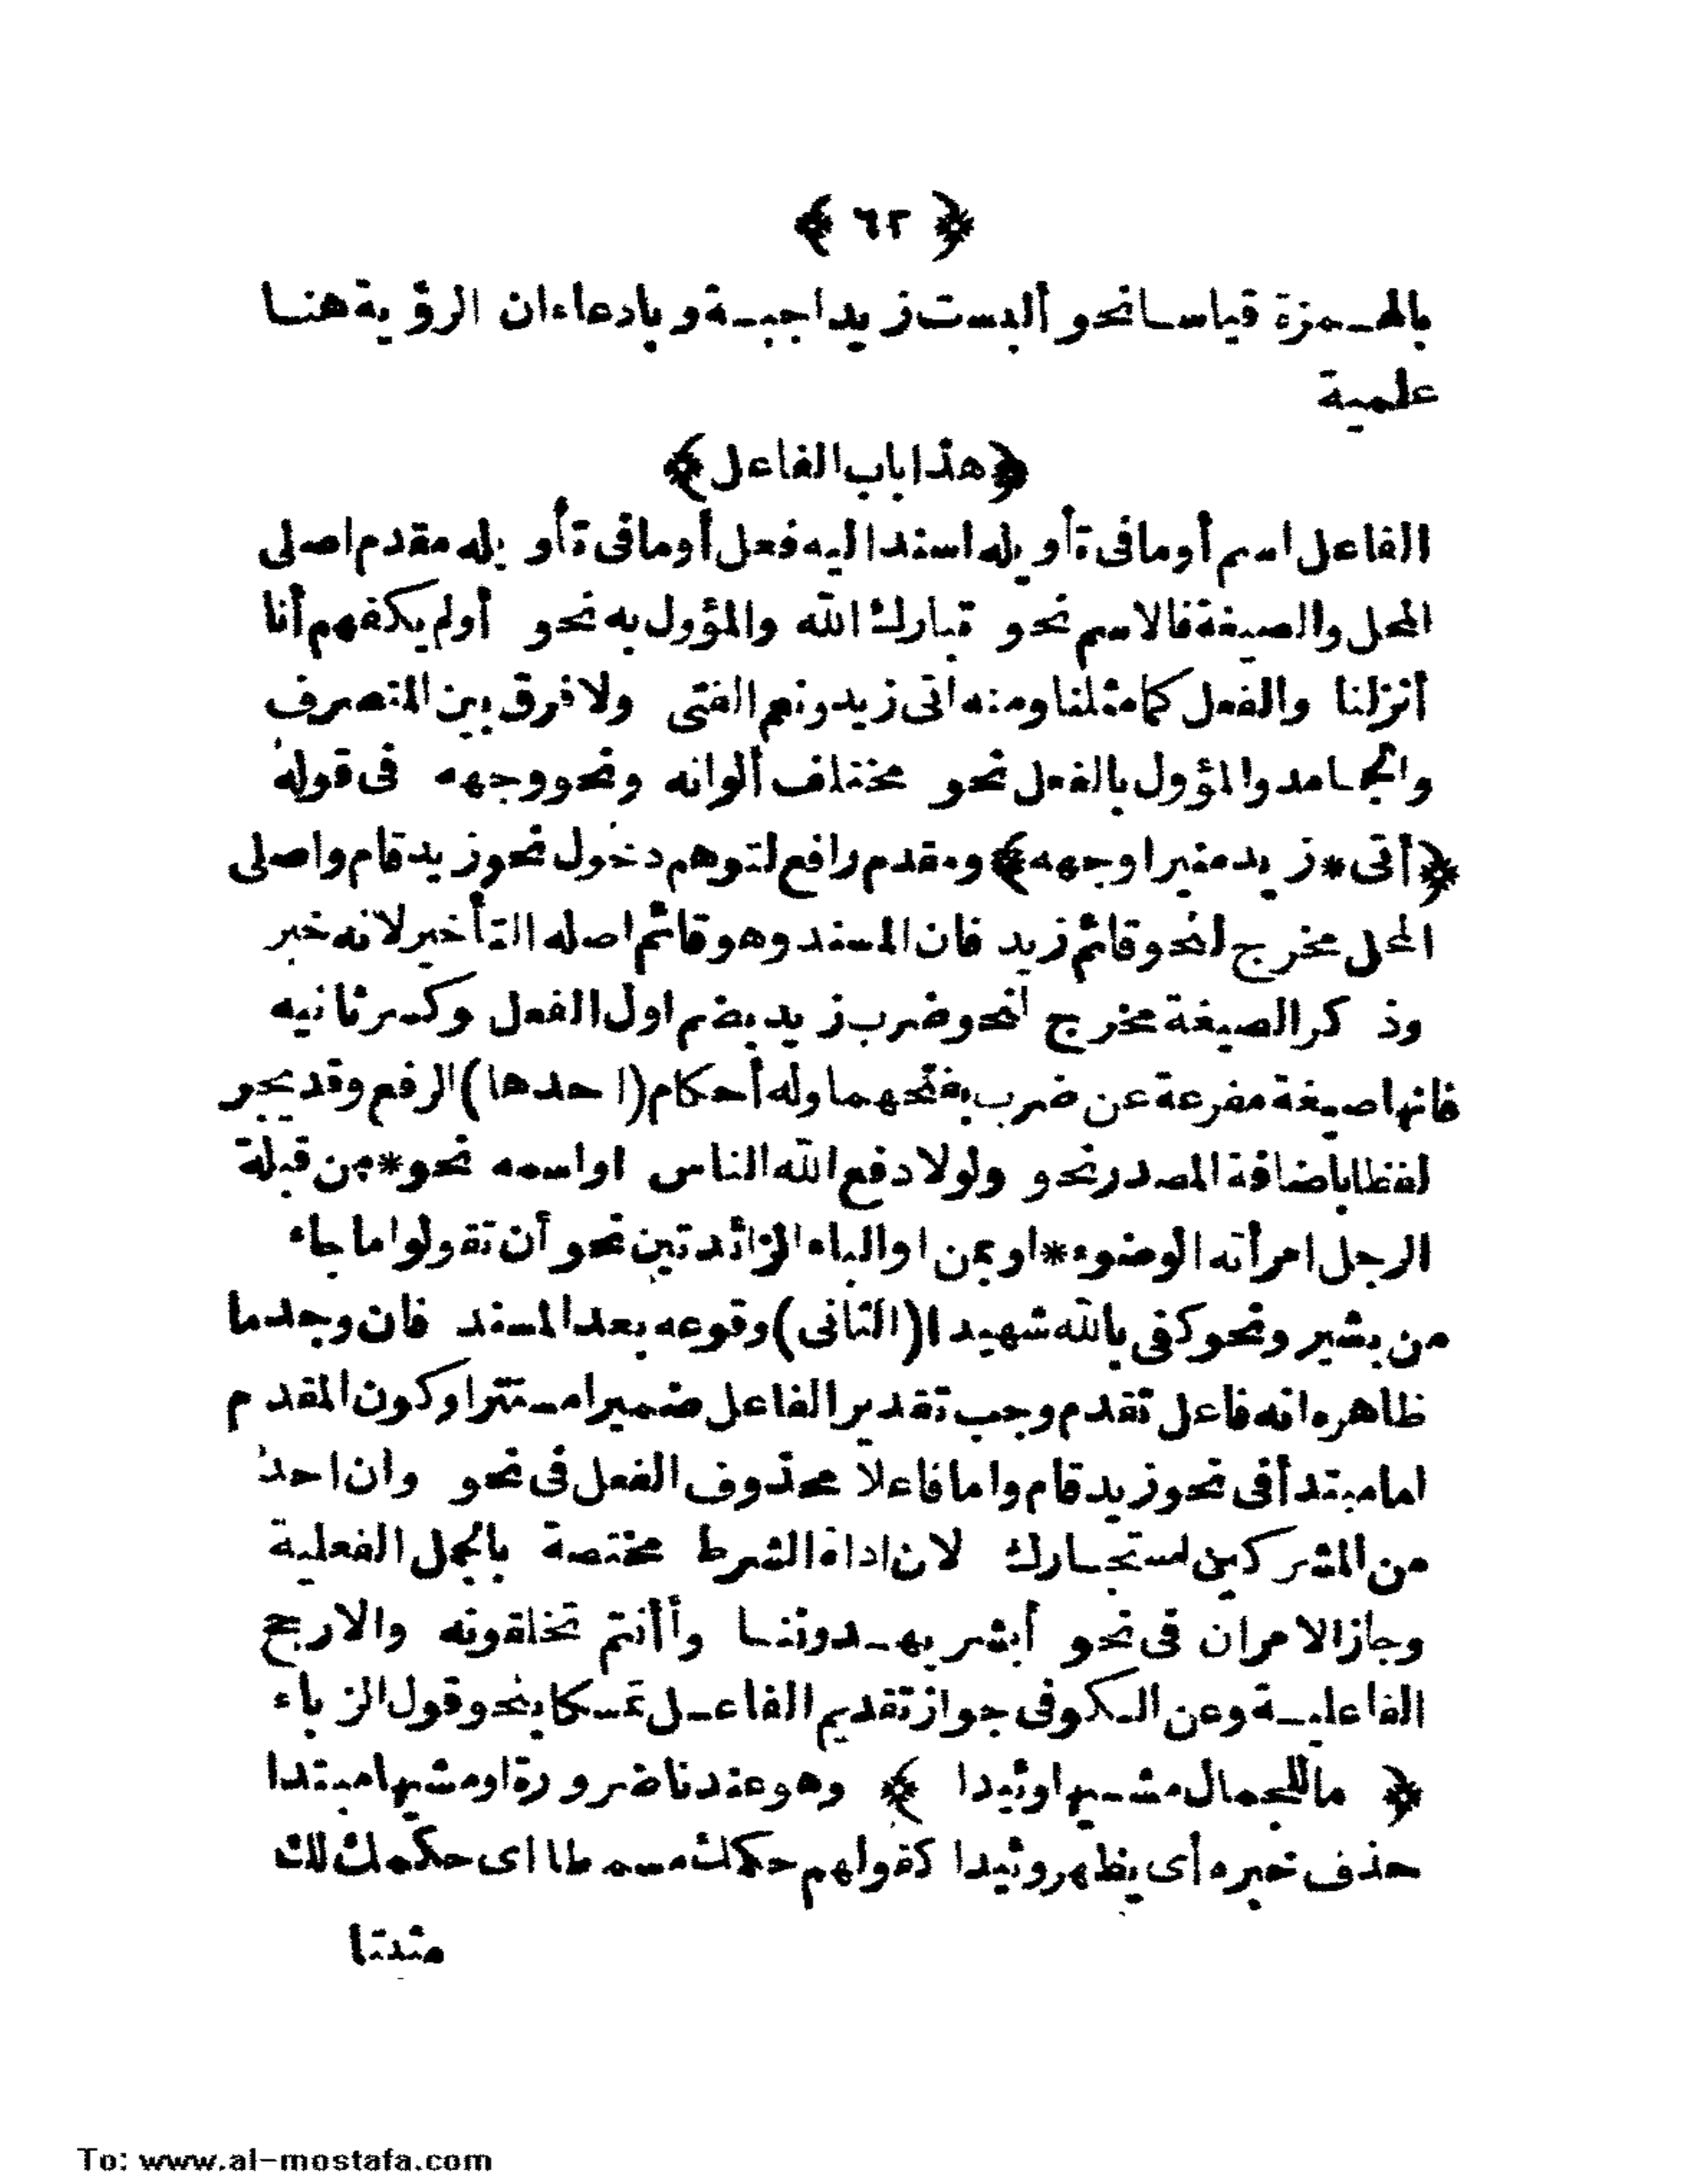 ﴿ ٦٢ ﴾
بالهمزة قياسا نحو ألبست زيدا جبة وبادعاء ان الرؤية هنا
علمية
﴿هذا باب الفاعل﴾
الفاعل اسم أو ما فى تأويله اسند اليه فعل أو ما فى تأويله مقدم اصلى
المحل والصيغة فالاسم نحو تبارك الله والمؤول به نحو أولم يكفهم أنا
أنزلنا والفعل كما مثلنا ومنه اتى زيد ونعم الفتى ولا فرق بين المتصرف
والجامد والمؤول بالفعل نحو مختلف ألوانه ونحو وجهه فى قوله
﴿أتى * زيد منيرا وجهه﴾ ومقدم رافع لتوهم دخول نحو زيد قام واصلى
المحل مخرج لنحو قائم زيد فان المسند وهو قائم اصله التأخير لانه خبر
وذكر الصيغة مخرج لنحو ضرب زيد بضم اول الفعل وكسر ثانيه
فانها صيغة مفرعة عن ضرب بفتحهما وله أحكام (احدها) الرفع وقد يجر
لفظا باضافة المصدر نحو ولولا دفع الله الناس او اسمه نحو * من قبلة
الرجل امرأته الوضوء * او بمن او الباء الزائدتين نحو أن تقولوا ما جاء
من بشير ونحو كفى بالله شهيدا (الثانى) وقوعه بعد المسند فان وجد ما
ظاهره انه فاعل تقدم وجب تقدير الفاعل ضميرا مستترا وكون المقدم
اما مبتدأ فى نحو زيد قام واما فاعلا محذوف الفعل فى نحو وان احد
من المشركين استجارك لان اداة الشرط مختصة بالجمل الفعلية
وجاز الامران فى نحو أبشر يهدوننا وأأنتم تخلقونه والارجح
الفاعلية وعن الكوفى جواز تقديم الفاعل تمسكا بنحو قول الزباء
﴿ ما للجمال مشيها وئيدا ﴾ وهو عندنا ضرورة او مشيها مبتدا
حذف خبره أى يظهر وئيدا كقولهم حكمك مسمطا اى حكمك لك
مثبتا
To: www.al-mostafa.com